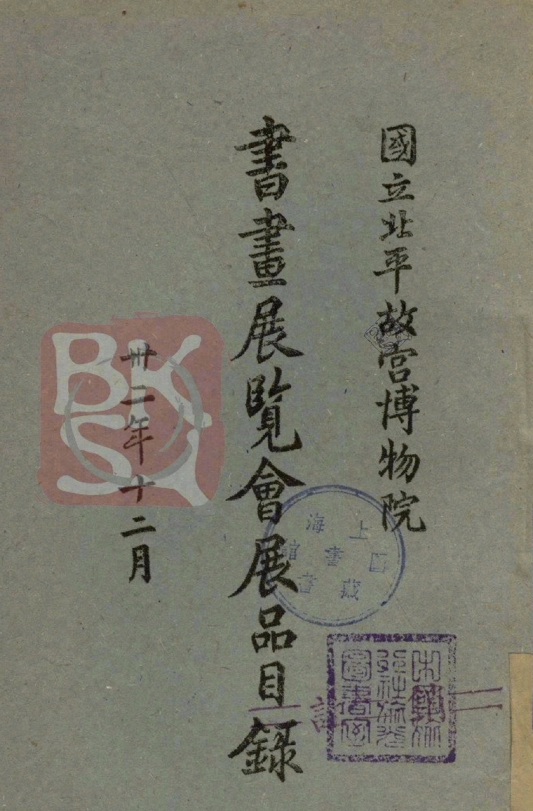 國立北平故宮博物院
書畫展覽會展品目錄
卅二年十二月
上海圖書館藏書
BKSY